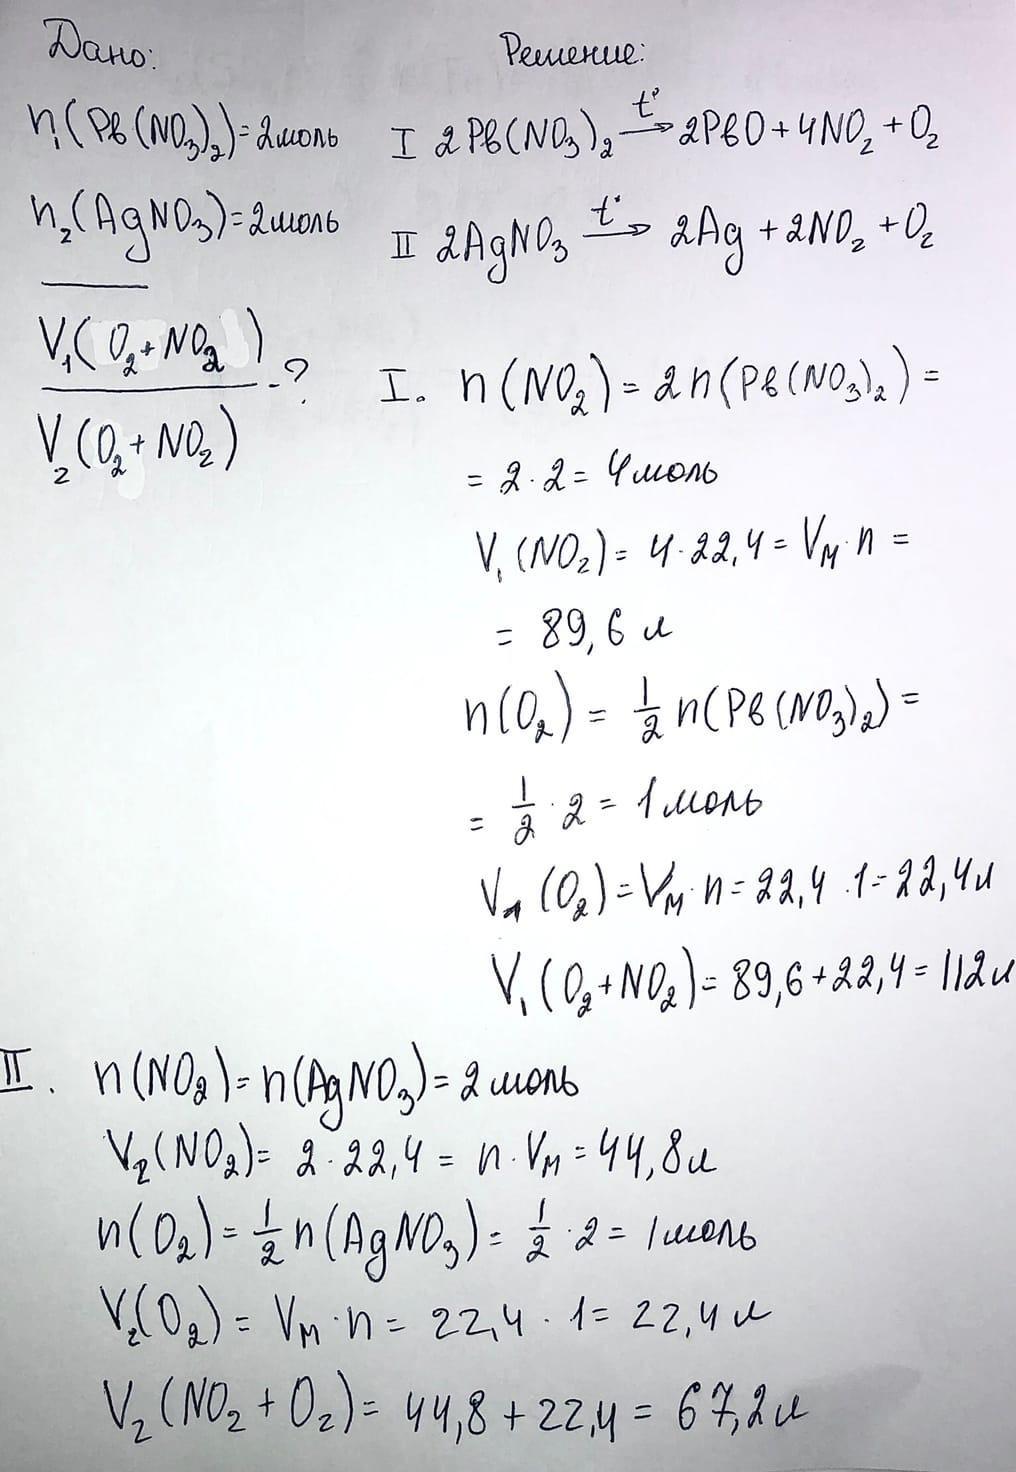 Дано:
n₁(Pb(NO₃)₂)=2моль
n₂(AgNO₃)=2моль
V₁(O₂+NO₂)
-?
V₂(O₂+NO₂)
Решение:
I 2Pb(NO₃)₂ t°→ 2PbO+4NO₂+O₂
II 2AgNO₃ t°→ 2Ag+2NO₂+O₂
I. n(NO₂)=2n(Pb(NO₃)₂)=
=2·2=4моль
V₁(NO₂)=4·22,4=Vм·n=
=89,6 л
n(O₂)=1/2 n(Pb(NO₃)₂)=
=1/2·2=1моль
V₁(O₂)=Vм·n=22,4·1=22,4л
V₁(O₂+NO₂)=89,6+22,4=112л
II. n(NO₂)=n(AgNO₃)=2моль
V₂(NO₂)=2·22,4=n·Vм=44,8л
n(O₂)=1/2 n(AgNO₃)=1/2·2=1моль
V₂(O₂)=Vм·n=22,4·1=22,4л
V₂(NO₂+O₂)=44,8+22,4=67,2л